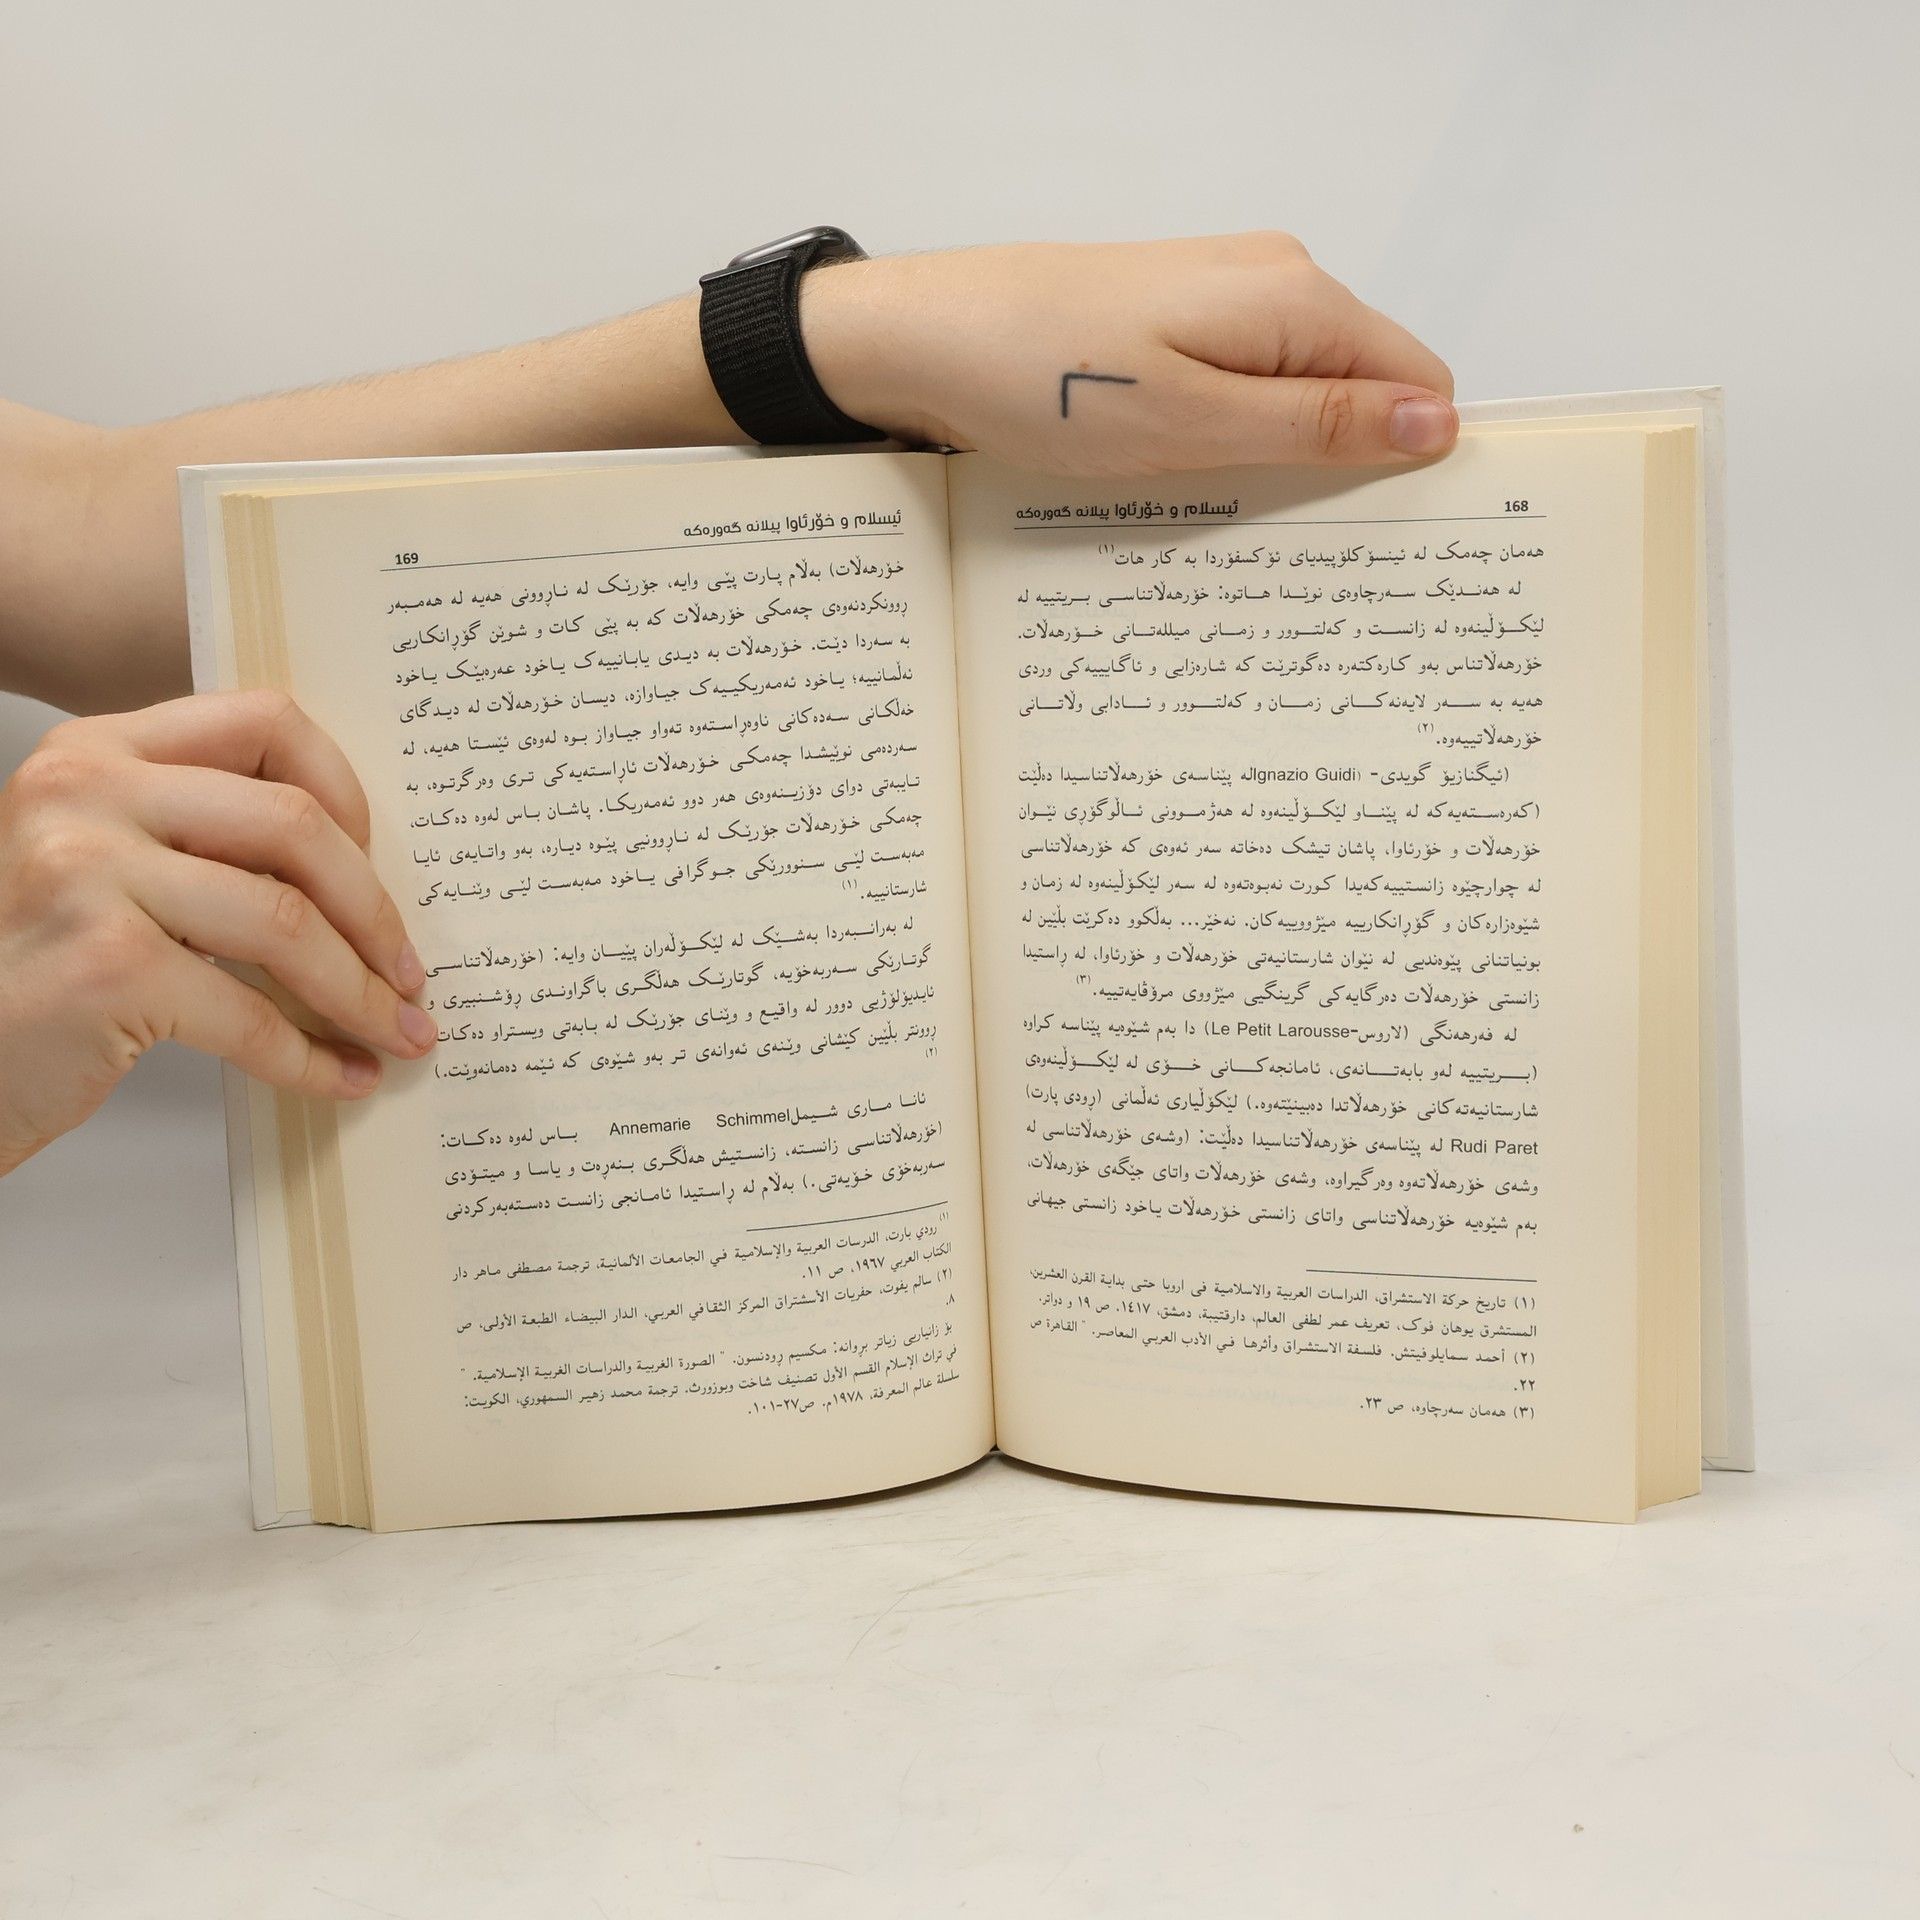 168
ئیسلام و خۆرئاوا پیلانە گەورەکە
هەمان چەمک لە ئینسۆکلۆپیدیای ئۆکسفۆردا بە کار هات(١)
لە هەندێک سەرچاوەی نوێدا هاتوە: خۆرهەڵاتناسی بریتییە لە
لێکۆڵینەوە لە زانست و کەلتوور و زمانی میللەتانی خۆرهەڵات.
خۆرهەڵاتناس بەو کارەکتەرە دەگوترێت کە شارەزایی و ئاگاییەکی وردی
هەیە بە سەر لایەنەکانی زمان و کەلتوور و ئادابی وڵاتانی
خۆرهەڵاتییەوە.(٢)
(ئیگنازیۆ گویدی- (Ignazio Guidiلە پێناسەی خۆرهەڵاتناسیدا دەڵێت
(کەرەستەیەکە لە پێناو لێکۆڵینەوە لە هەژموونی ئاڵوگۆڕی نێوان
خۆرهەڵات و خۆرئاوا، پاشان تیشک دەخاتە سەر ئەوەی کە خۆرهەڵاتناسی
لە چوارچێوە زانستییەکەیدا کورت نەبوەتەوە لە سەر لێکۆڵینەوە لە زمان و
شێوەزارەکان و گۆڕانکارییە مێژووییەکان. نەخێر... بەڵکوو دەکرێت بڵێین لە
بونیاتنانی پێوەندیی لە نێوان شارستانیەتی خۆرهەڵات و خۆرئاوا، لە ڕاستیدا
زانستی خۆرهەڵات دەرگایەکی گرینگیی مێژووی مرۆڤایەتییە.(٣)
لە فەرهەنگی (لاروس-Le Petit Larousse) دا بەم شێوەیە پێناسە کراوە
(بریتییە لەو بابەتانەی، ئامانجەکانی خۆی لە لێکۆڵینەوەی
شارستانیەتەکانی خۆرهەڵاتدا دەبینێتەوە.) لێکۆڵیاری ئەڵمانی (ڕودی پارت)
Rudi Paret لە پێناسەی خۆرهەڵاتناسیدا دەڵێت: (وشەی خۆرهەڵاتناسی لە
وشەی خۆرهەڵاتەوە وەرگیراوە، وشەی خۆرهەڵات واتای جێگەی خۆرهەڵات،
بەم شێوەیە خۆرهەڵاتناسی واتای زانستی خۆرهەڵات یاخود زانستی جیهانی
(١) تاریخ حركة الاستشراق، الدراسات العربیة والاسلامیة فی اروبا حتی بدایة القرن العشرین،
المستشرق یوهان فوک، تعریف عمر لطفی العالم، دارقتیبة، دمشق، ١٤١٧. ص ١٩ و دواتر.
(٢) أحمد سمایلوفیتش. فلسفة الاستشراق وأثرها في الأدب العربي المعاصر. " القاهرة ص
٢٢.
(٣) هەمان سەرچاوە، ص ٢٣.
ئیسلام و خۆرئاوا پیلانە گەورەکە
169
خۆرهەڵات) بەڵام پارت پێی وایە، جۆرێک لە ناڕوونی هەیە لە هەمبەر
ڕوونکردنەوەی چەمکی خۆرهەڵات کە بە پێی کات و شوێن گۆڕانکاریی
بە سەردا دێت. خۆرهەڵات بە دیدی یابانییەک یاخود عەرەبێک یاخود
ئەڵمانییە؛ یاخود ئەمەریکییەک جیاوازە، دیسان خۆرهەڵات لە دیدگای
خەڵکانی سەدەکانی ناوەڕاستەوە تەواو جیاواز بوە لەوەی ئێستا هەیە، لە
سەردەمی نوێیشدا چەمکی خۆرهەڵات ئاڕاستەیەکی تری وەرگرتوە، بە
تایبەتی دوای دۆزینەوەی هەر دوو ئەمەریکا. پاشان باس لەوە دەکات،
چەمکی خۆرهەڵات جۆرێک لە ناڕوونیی پێوە دیارە، بەو واتایەی ئایا
مەبەست لێی سنوورێکی جوگرافی یاخود مەبەست لێی وێنایەکی
شارستانییە.(١)
لە بەرانبەردا بەشێک لە لێکۆڵەران پێیان وایە: (خۆرهەڵاتناسی
گوتارێکی سەربەخۆیە، گوتارێک هەڵگری باگراوندی ڕۆشنبیری و
ئایدیۆلۆژیی دوور لە واقیع و وێنای جۆرێک لە بابەتی ویستراو دەکات،
ڕوونتر بڵێین کێشانی وێنەی ئەوانەی تر بەو شێوەی کە ئێمە دەمانەوێت.)
(٢)
ئانا ماری شیملAnnemarie Schimmel باس لەوە دەکات:
(خۆرهەڵاتناسی زانستە، زانستیش هەڵگری بنەڕەت و یاسا و میتۆدی
سەربەخۆی خۆیەتی.) بەڵام لە ڕاستیدا ئامانجی زانست دەستەبەرکردنی
(١) رودي بارت، الدرسات العربیة والإسلامیة في الجامعات الألمانیة، ترجمة مصطفی ماهر دار
الکتاب العربي ١٩٦٧، ص ١١.
(٢) سالم یفوت، حفریات الأستشراق المرکز الثقافي العربي، الدار البیضاء الطبعة الأولی، ص
٨.
بۆ زانیاریی زیاتر بڕوانە: مکسیم ڕودنسون. " الصورة الغربیة والدراسات الغربیة الإسلامیة. "
في تراث الإسلام القسم الأول تصنیف شاخت وبوزورث. ترجمة محمد زهیر السمهوري، الکویت:
سلسلة عالم المعرفة، ١٩٧٨م. ص٢٧-١٠١.